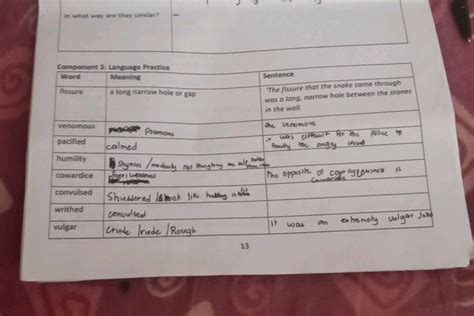 In what way are they similar?
Component 3: Language Practice
Word Meaning Sentence
fissure a long narrow hole or gap 'The fissure that the snake came through
was a long, narrow hole between the stones
in the wall.
venomous Poisonous the venomous
pacified calmed it was difficult for the police to
the angry
humility Shyness / modesty not
cowardice weakness The opposite of is
convulsed Shuddered / shook like having a fit
writhed convulsed
vulgar Crude / rude / Rough it was an extremely vulgar joke
13